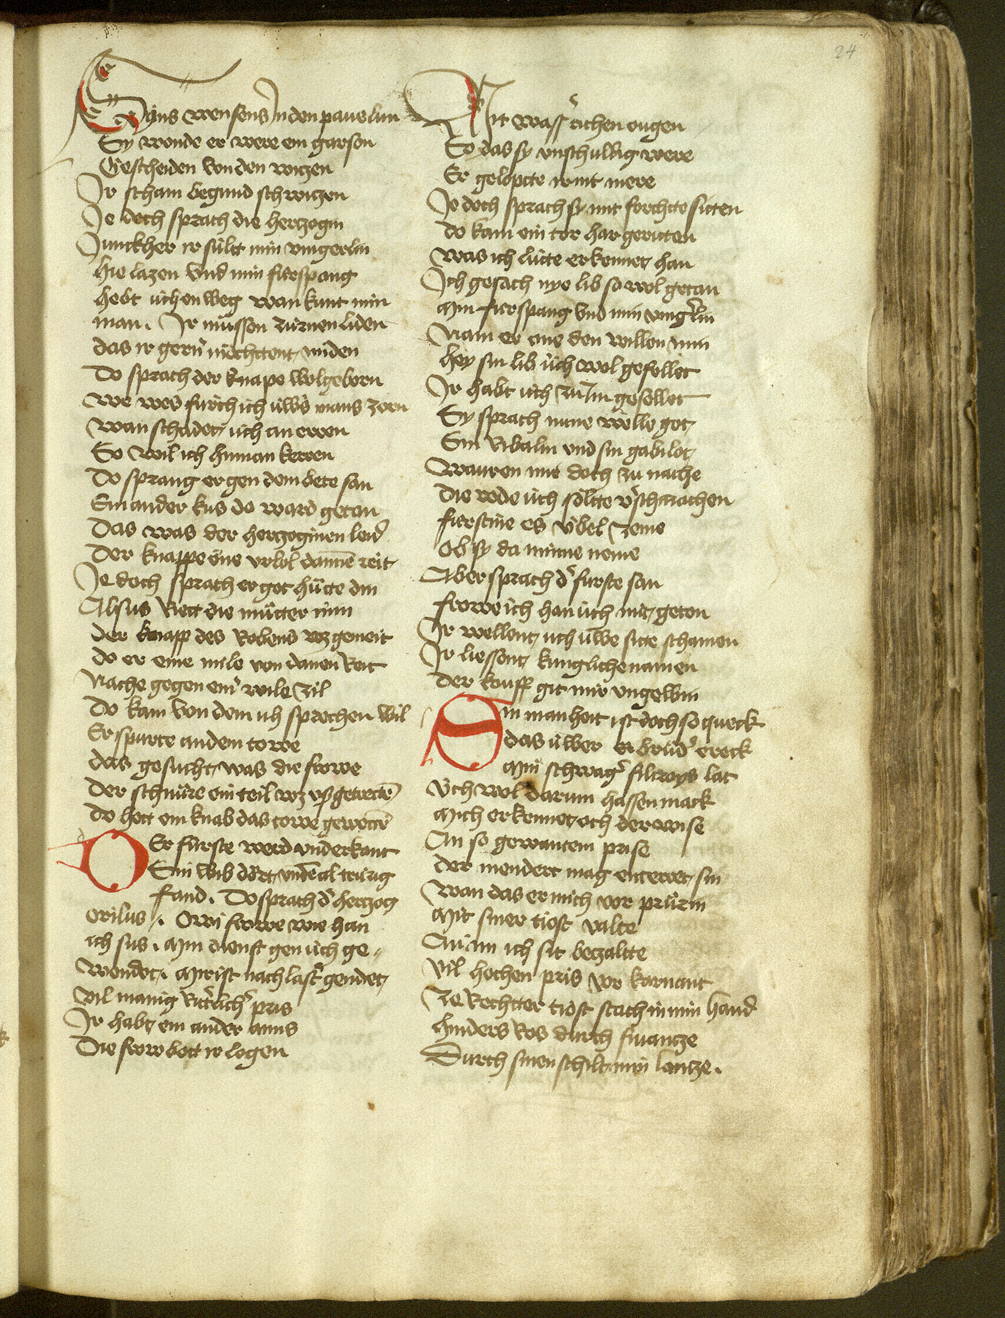 24
Eyns wensens In den pauelun
Sy wonde er were ein garson
Gescheiden von den witzen
Ir scham begund schwitzen
Je doch sprach die hertzogin
Junckher ir sült min vingerlin
hie lazen vnd min fürspang
hebt üch en weg wan kunt min
man. Ir müssen zürnen liden
das ir gern möchtent miden
Do sprach der knape wolgeborn
We wes fürcht ich üwers mans zorn
wan schadet üch an eren
So wil ich hinnan keren
Do sprang er gen dem bete san
Ein ander kus do ward getan
Das was der hertzoginen leid
Der knappe öne vrlob dannen reit
Je doch sprach er got hütte din
Alsus Rett die mütter min
Der knapp des Robens was gemeit
do er eine mile von danen Reit
Nache gegen einer mile zil
Do kam von dem ich sprechen wil
Er spurte an dem towe
das gesucht was die frowe
Der schnüre ein teil waz vßgetrettet
Do hett ein knab das towe gewettet
Der fürste werd vnd erkant
Sin wib dort vnden al trurig
fand. Do sprach der hertzog
orilus. Owi frowe wie han
ich sus. Min dienst gen üch ge„
wendet. Mir ist nach laster gendet
vil manig Ritterlicher pris
Ir habt ein ander amis
Die frow bott ir logen
Mit wasserrichen ougen
So das sy vnschuldig were
Er geloupte ir nit mere
Je doch sprach sy mit forchte sitten
do kam ein tor har geritten
was ich lütte erkennet han
Ich gesach nye lib so wol getan
Min fürspang vnd min vingerlin
Nam er ane den willen min
hey sin lib üch wol gefellet
Ir habt üch zu Im gesellet
Sy sprach nune welle got
Sin Ribalin vnd sin gabilot
Wauren mir doch zu nache
Die rede üch sölte verschmachen
fürstine es übel zeme
Ob sy da minne neme
Aber sprach der fürste san
frowe ich han üch nit geton
Ir wellent üch üwer sitte schamen
Ir liessent künglichenamen
Der kouff git mir vngewin
Sin manheit ist doch so queck
das üwer bruder ereck
Min schwager filleroys lac
Üch wol darum hassen mack
Mich erkennet och der wise
An so gewantem prise
der niendert mag enteret sin
Wan das er mich vor prürin
Mit siner tiost valte
An im ich sit bezalte
Vil hochen pris vor karnant
Ze Rechter tiost stach in min hand
hinders Ros durch fiantze
Durch sinen schilt min lantze.